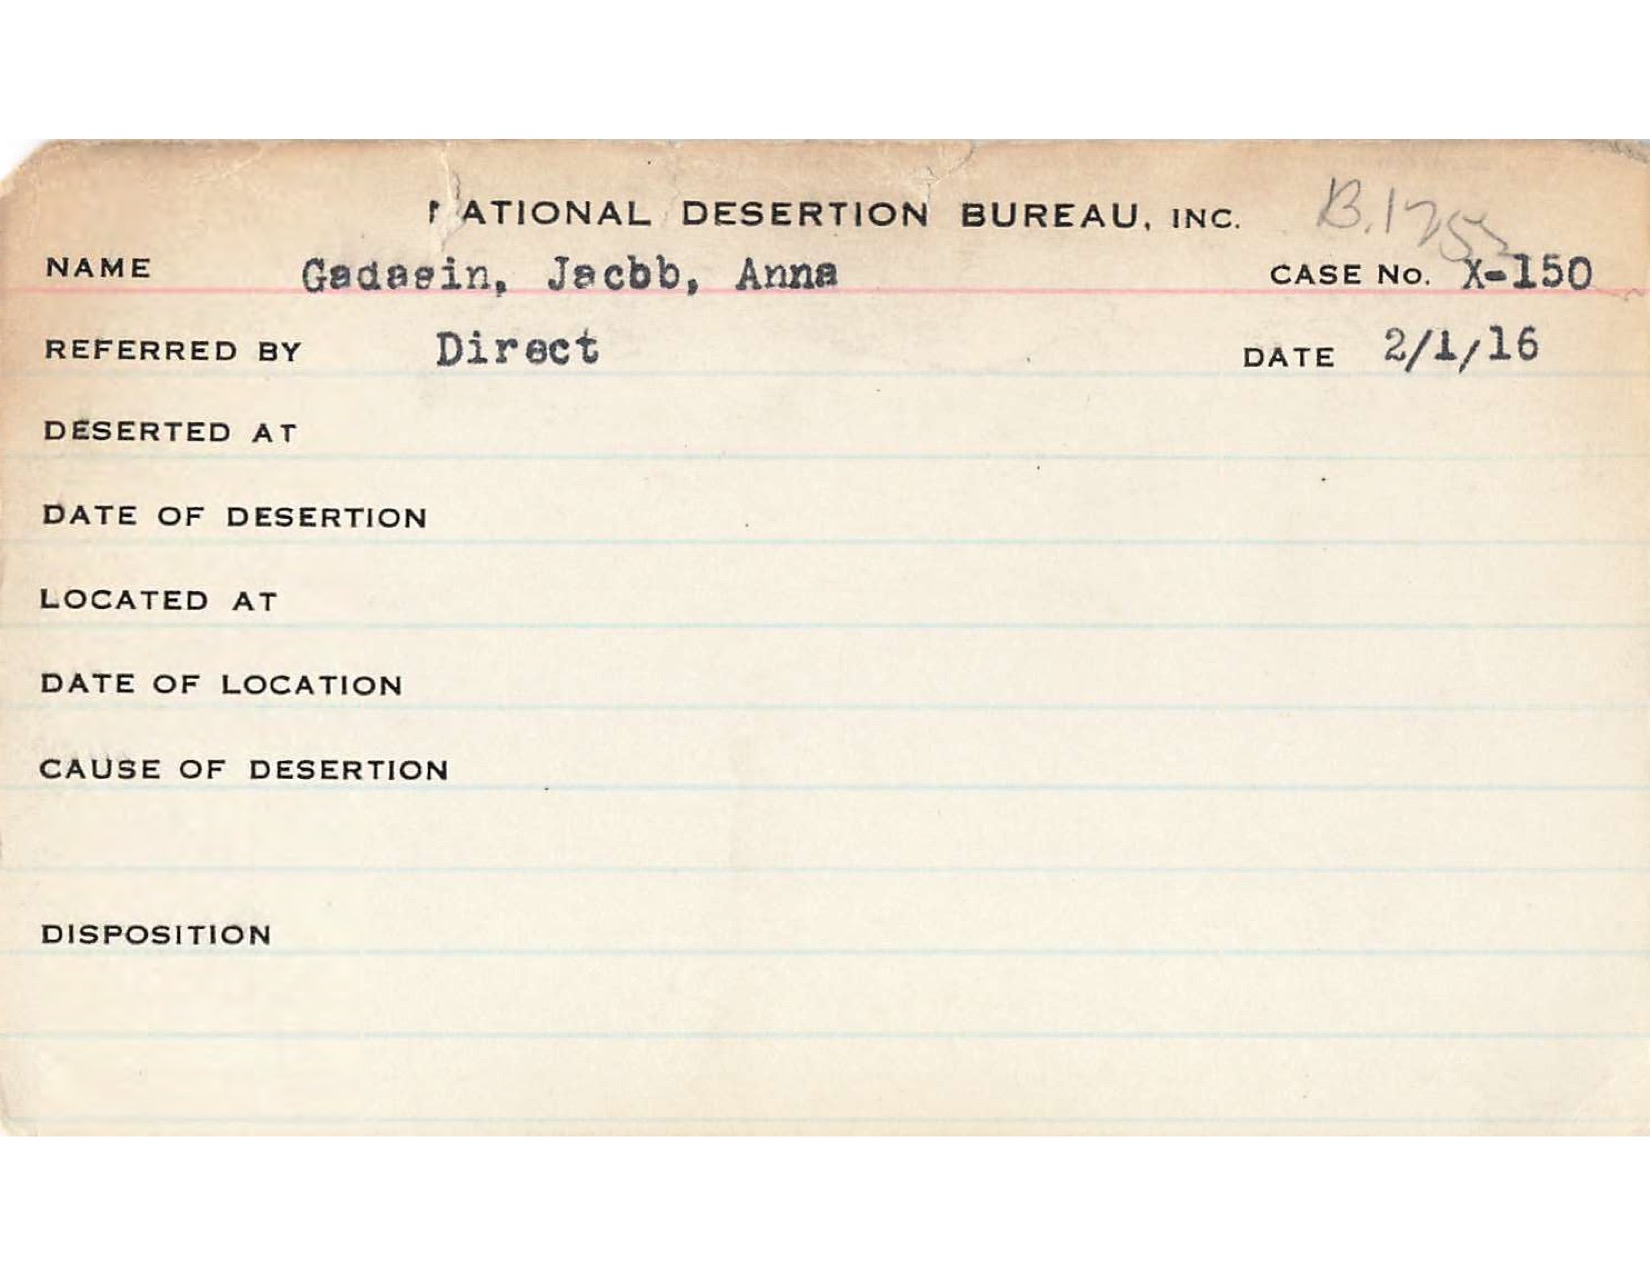 NATIONAL DESERTION BUREAU, INC. B.1755
NAME Gadasin, Jacob, Anna CASE No. X-150
REFERRED BY Direct DATE 2/1/16
DESERTED AT
DATE OF DESERTION
LOCATED AT
DATE OF LOCATION
CAUSE OF DESERTION
DISPOSITION